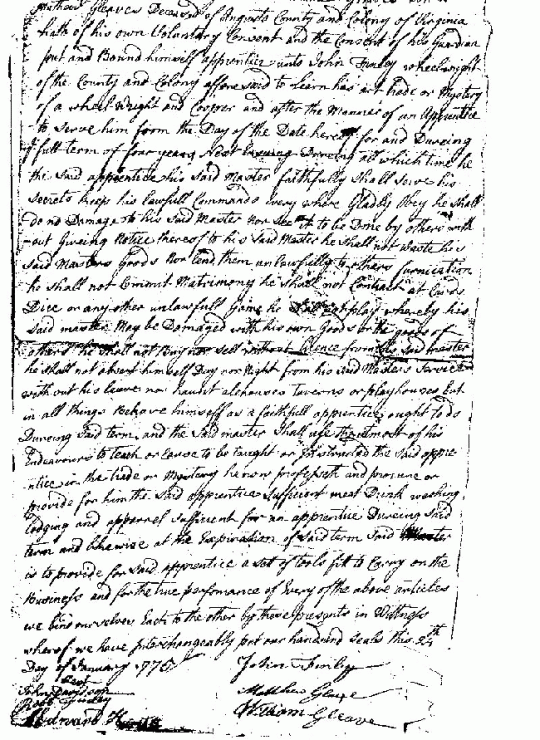 Gleaves Deceased of Augusta County and Colony of Virginia
hath of his own Voluntary Consent and the Consent of his Guardian
put and Bound himself apprentice unto John Finley wheelwright
of the County and Colony afforesaid to Learn his art trade or Mystery
of a wheel wright and Cooper and after the Manner of an Apprentice
to Serve him from the Day of the Date hereof for and Dureing
full term of four years Next Ensuing Dureing all which time he
the Said apprentice his Said Master faithfully Shall Serve his
Secrets keep his lawfull Commands Every where Gladly Obey he Shall
do no Damage to his Said Master nor See it to be Done by others with
out Giveing Notice thereof to his Said Master he Shall not waste his
Said Masters Goods Nor lend them unlawfully to others furnication
he Shall not Commit Matrimony he Shall not Contract at Cards
Dice or any other unlawfull Game he Shall not play whereby his
Said master May be Damaged with his own Goods or the goods of
others he Shall not Buy nor Sell without Licence from his Said master
he Shall not absent himself Day nor Night from his said Masters Service
without his leave nor haunt alehouses taverns or playhouses but
in all things behave himself as a faithfull apprentice ought to do
Dureing Said term and the Said master Shall use the utmost of his
Endeavours to teach or Cause to be taught or Instructed the Said appre
ntice in the trade or Mistery he now professeth and procure or
provide for him the Said apprentice Sufficient meat Drink washing
Lodging and apparrel Sufficent for an apprentice Dureing Said
term and likewise at the Expiration of Said term Said Master
is to provide for Said apprentice a Set of tools fitt to Carry on the
Business and for the true performance of Every of the above articles
we bind ourselves Each to the other by these presents in Wittness
whereof we have Interchangeably put our hand and Seals this 24th
Day of January 1775
John Finley
Test
John Davisson
Robt Finley
Matthew Gleave
William Gleave
Edward